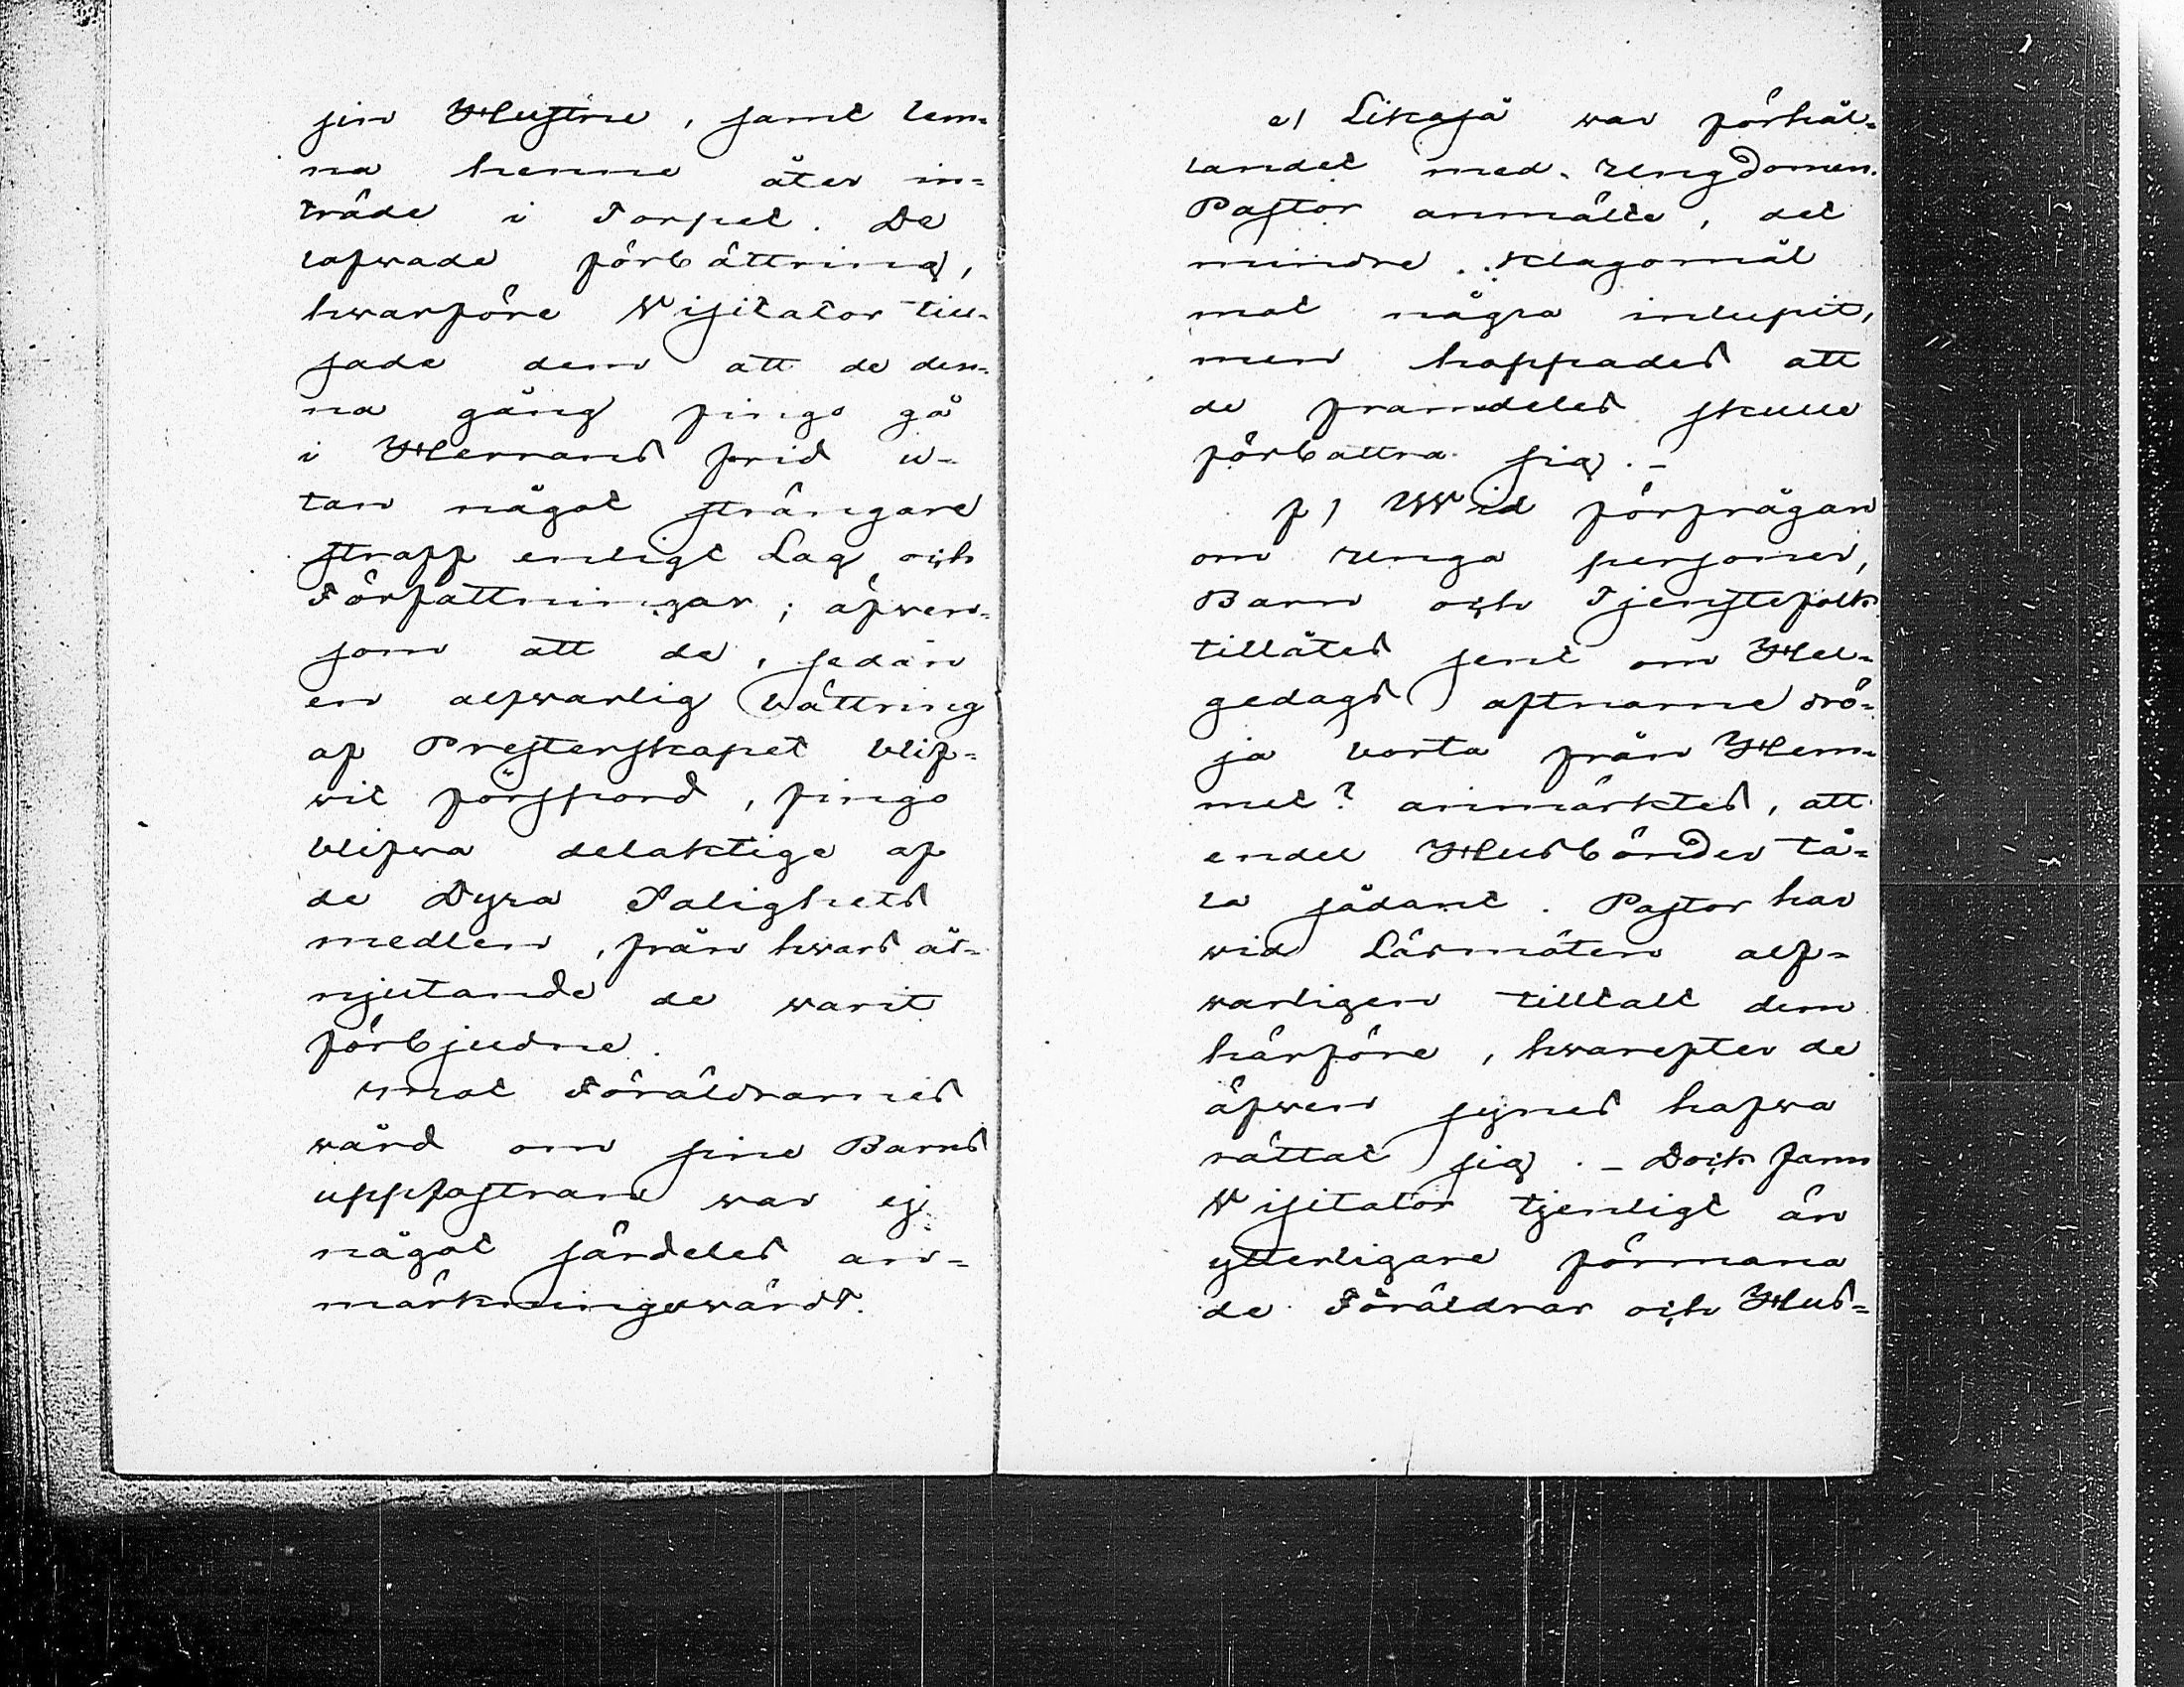 sin Hustru, samt lem-
na henne åter in-
träde i Torpet. De
lofwade förbättring,
hwarföre Visitator till-
sade dem att de den-
na gång fingo gå
i Herrans frid u-
tan något strängare
straff enligt Lag och
Författningar; äfwen-
som att de, sedan
en alfwarlig bättring
af Presterskapet blif-
wit försspord, fingo
blifwa delaktige af
de Dyra Salighets
medlen, från hwars åt-
njutande de warit
förbjudne.
mot Föräldrarnes
wård om sine Barns
uppfostran war ej
något särdeles an-
märkningswärdt.
e) Likaså war förhål-
landet med Ungdomen.
Pastor anmälte, det
mindre Klagomål
mot några inlupit,
men hoppades att
de framdeles skulle
förbättra sig. -
f) Wid förfrågan
om unga personer,
Barn och Tjenstefolk
tillåtes sent om Hel-
gedags aftnarne drö-
ja borta från Hem-
met? anmärktes, att
endel Husbönder tå-
la sådant. Pastor har
wid Läsmöten alf-
warligen tilltalt dem
härföre, hwarefter de
äfwen synes hafwa
rättat sig. - Dock fann
Visitator tjenligt än
ytterligare förmana
de Föräldrar och Hus-